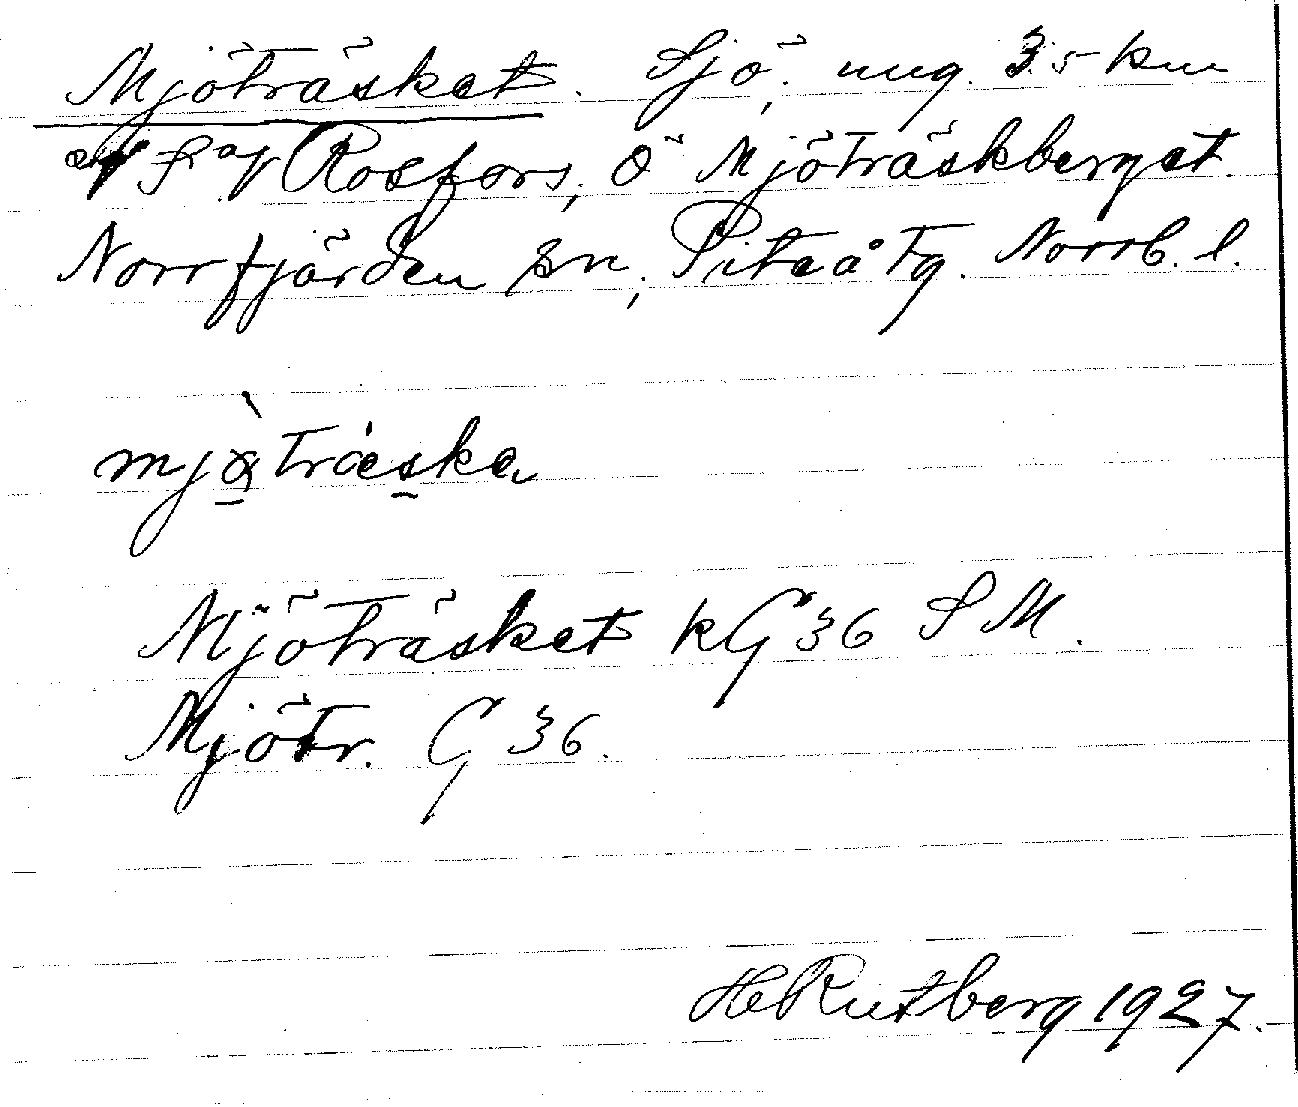 Mjöträsket. Sjö, ung. 3.5 km
av Rosfors, Ö Mjöträskberget.
Norrfjärden sn, Piteå tg. Norrb. l.
mjöträska
Mjöträsket kG 36 SM.
Mjötr. G 36.
HRutberg 1927.